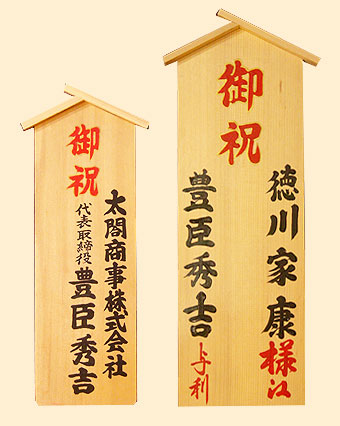 御祝
太閤商事株式会社
代表取締役 豊臣秀吉
御祝
徳川家康様江
豊臣秀吉与利